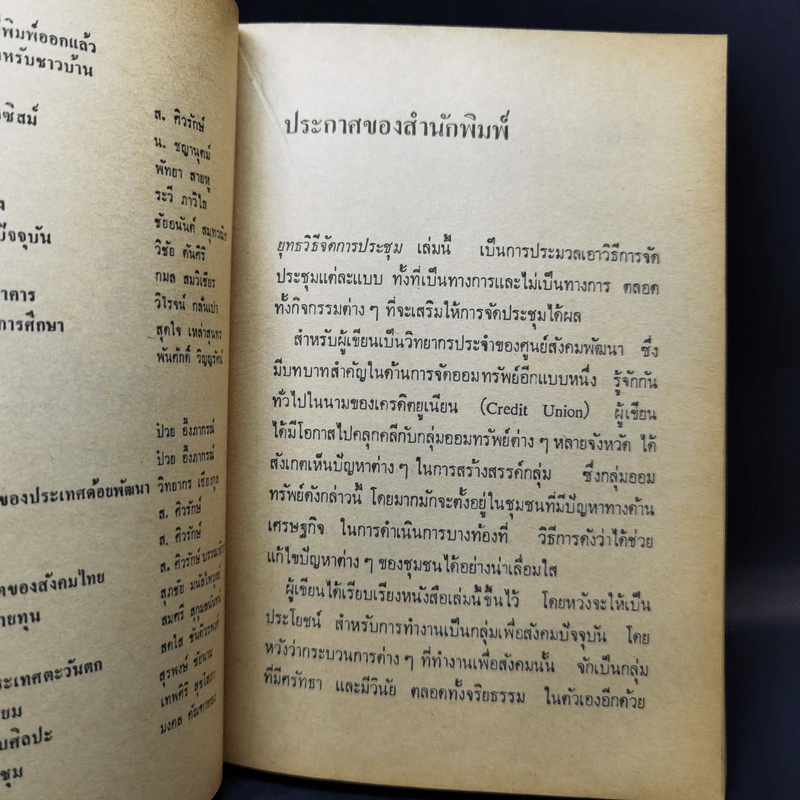 พิมพ์ออกแล้ว
หรับชาวบ้าน
ซิสม์
ปัจจุบัน
อาคาร
การศึกษา
ของประเทศด้อยพัฒนา
ของสังคมไทย
ายทุน
ระเทศตะวันตก
ยม
บศิลปะ
ชุม
ส. ศิวรักษ์
น. ชญานุตม์
พัทยา สายหู
ระวี ภาวิไล
ชัยอนันต์ สมุทวณิช
วิชัย ตันศิริ
กมล สมวิเชียร
วิโรจน์ กลั่นเปา
สุดใจ เหล่าสุนทร
พันศักดิ์ วิญญรัตน์
ป๋วย อึ๊งภากรณ์
ป๋วย อึ๊งภากรณ์
วิทยากร เชียงกูล
ส. ศิวรักษ์
ส. ศิวรักษ์
ส. ศิวรักษ์
สุภชัย มนัสไพบูลย์
สมศรี สุกุมลนันทน์
สดใส ขันติวรพงศ์
สุรพงษ์ ชัยนาม
เทพศิริ สุขโสภา
ประกาศของสำนักพิมพ์
ยุทธวิธีจัดการประชุม เล่มนี้ เป็นการประมวลเอาวิธีการจัด
ประชุมแต่ละแบบ ทั้งที่เป็นทางการและไม่เป็นทางการ ตลอด
ทั้งกิจกรรมต่าง ๆ ที่จะเสริมให้การจัดประชุมได้ผล
สำหรับผู้เขียนเป็นวิทยากรประจำของศูนย์สังคมพัฒนา ซึ่ง
มีบทบาทสำคัญในด้านการจัดออมทรัพย์อีกแบบหนึ่ง รู้จักกัน
ทั่วไปในนามของเครดิตยูเนียน (Credit Union) ผู้เขียน
ได้มีโอกาสไปคลุกคลีกับกลุ่มออมทรัพย์ต่าง ๆ หลายจังหวัด ได้
สังเกตเห็นปัญหาต่าง ๆ ในการสร้างสรรค์กลุ่ม ซึ่งกลุ่มออม
ทรัพย์ดังกล่าวนี้ โดยมากมักจะตั้งอยู่ในชุมชนที่มีปัญหาทางด้าน
เศรษฐกิจ ในการดำเนินการบางท้องที่ วิธีการดังว่าได้ช่วย
แก้ไขปัญหาต่าง ๆ ของชุมชนได้อย่างน่าเลื่อมใส
ผู้เขียนได้เรียบเรียงหนังสือเล่มนี้ขึ้นไว้ โดยหวังจะให้เป็น
ประโยชน์ สำหรับการทำงานเป็นกลุ่มเพื่อสังคมปัจจุบัน โดย
หวังว่ากระบวนการต่าง ๆ ที่ทำงานเพื่อสังคมนั้น จักเป็นกลุ่ม
ที่มีศรัทธา และมีวินัย ตลอดทั้งจริยธรรม ในตัวเองอีกด้วย